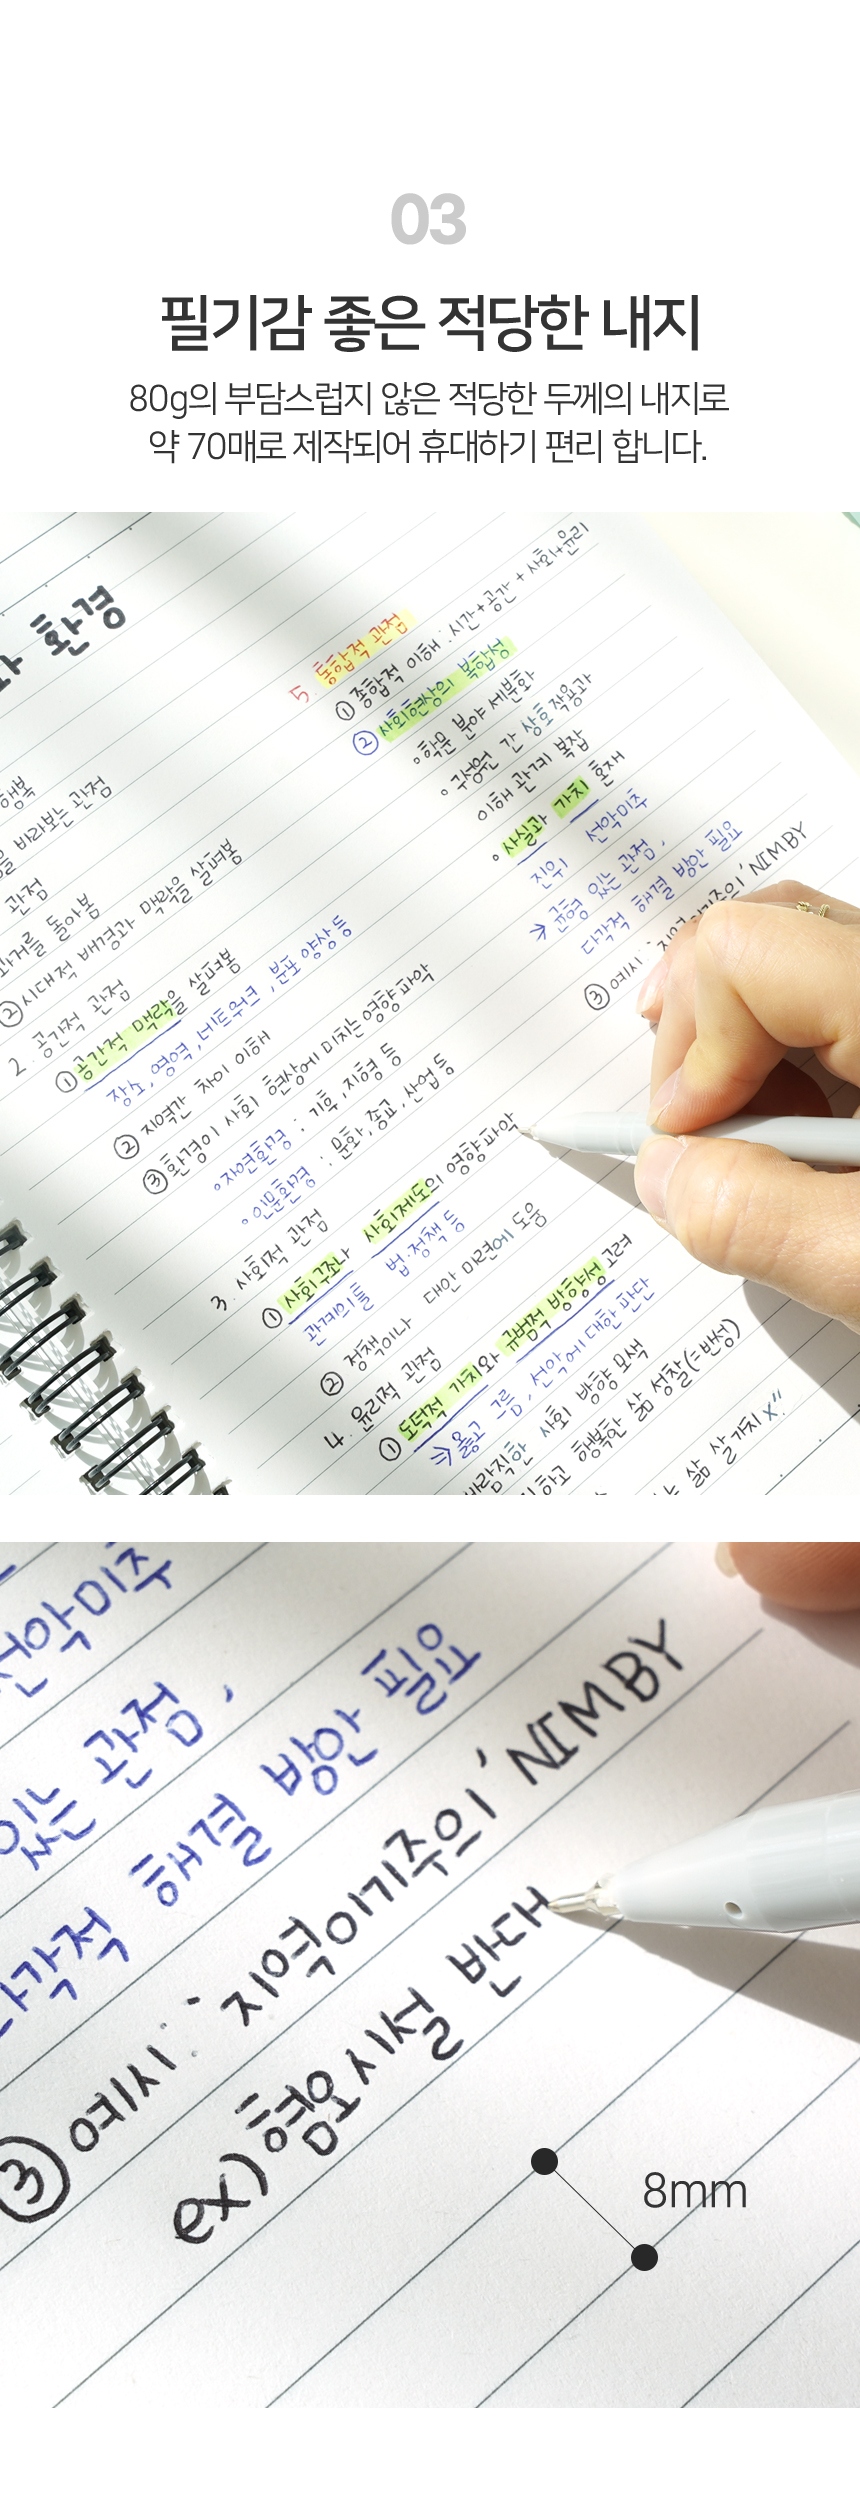 03
필기감 좋은 적당한 내지
80g의 부담스럽지 않은 적당한 두께의 내지로
약 70매로 제작되어 휴대하기 편리 합니다.
환경
행복
을 바라보는 관점
관점
과거를 돌아봄
② 시대적 배경과 맥락을 살펴봄
2. 공간적 관점
① 공간적 맥락을 살펴봄
장소, 영역, 네트워크, 분포 양상 등
② 지역간 차이 이해
③ 환경이 사회 현상에 미치는 영향 파악
∘자연환경 : 기후, 지형 등
∘인문환경 : 문화, 종교, 산업 등
3. 사회적 관점
① 사회구조나 사회제도의 영향 파악
관계의틀 법·정책 등
② 정책이나 대안 마련에 도움
4. 윤리적 관점
① 도덕적 가치와 규범적 방향성 고려
⇒ 옳고 그름, 선악에 대한 판단
바람직한 사회 방향 모색
하고 행복한 삶 성찰(=반성)
는 삶 살 가치 X"
5. 통합적 관점
① 종합적 이해 : 시간+공간 + 사회+윤리
② 사회현상의 복합성
∘학문 분야 세분화
∘구성원 간 상호작용과
이해 관계 복잡
∘사실과 가치 혼재
진위 선악미추
⇒ 균형 있는 관점,
다각적 해결 방안 필요
③ 예시 : 지역이기주의 'NIMBY
선악미추
있는 관점,
다각적 해결 방안 필요
③ 예시 : 지역이기주의 'NIMBY
ex) 혐오시설 반대
8mm